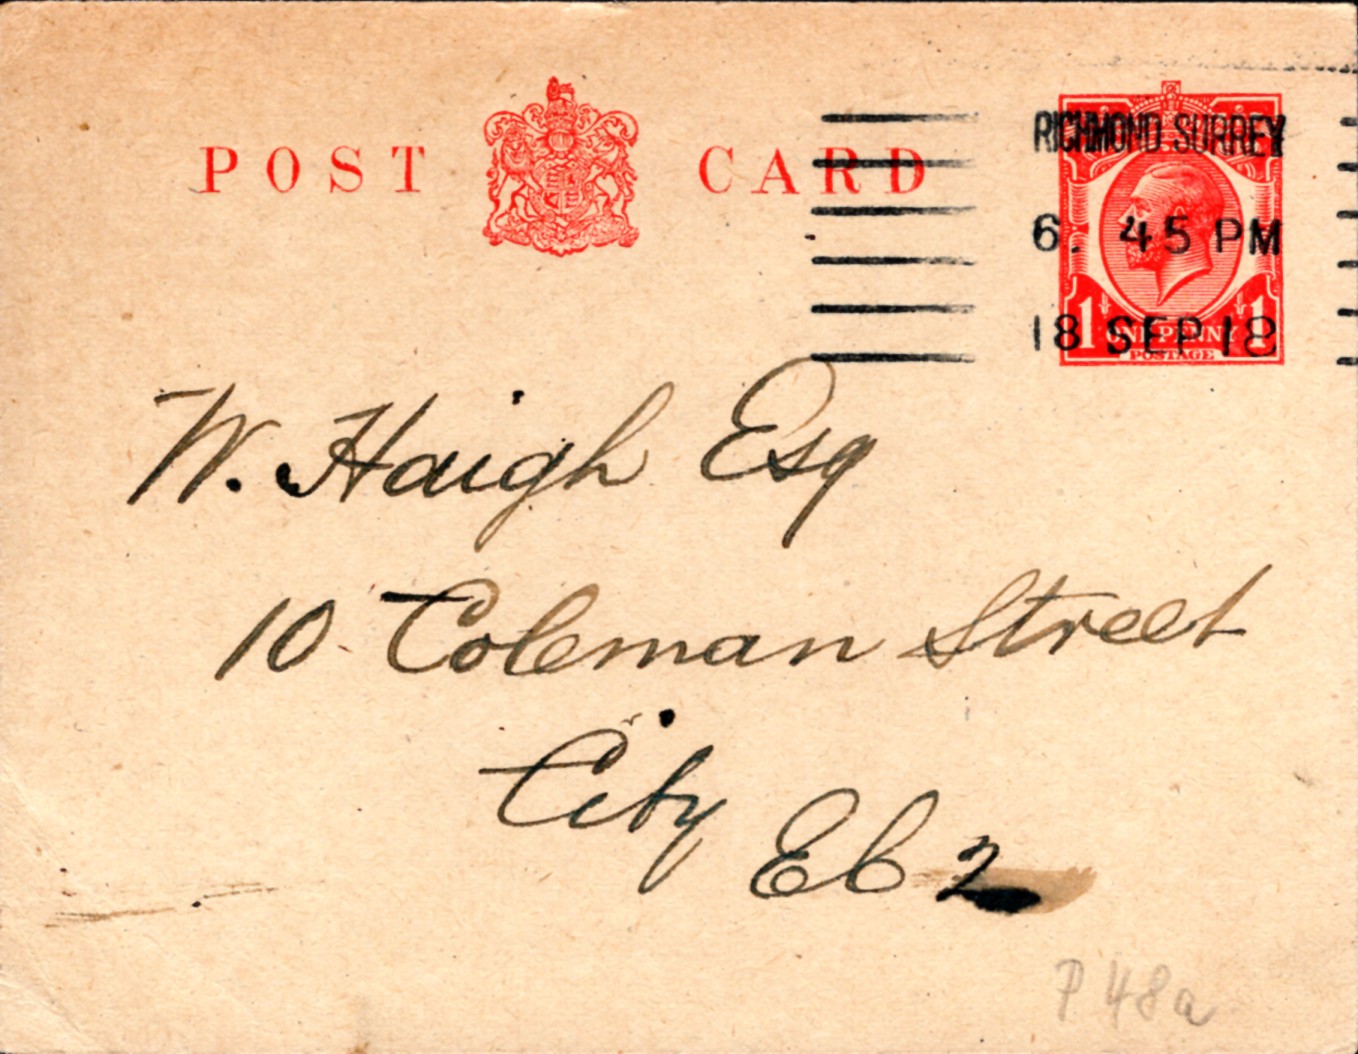 POST CARD
RICHMOND. SURREY
6. 45 PM
18 SEP 18
1 ONE PENNY 1
POSTAGE
W. Haigh Esq
10 Coleman Street
City
EC 2
P 48a